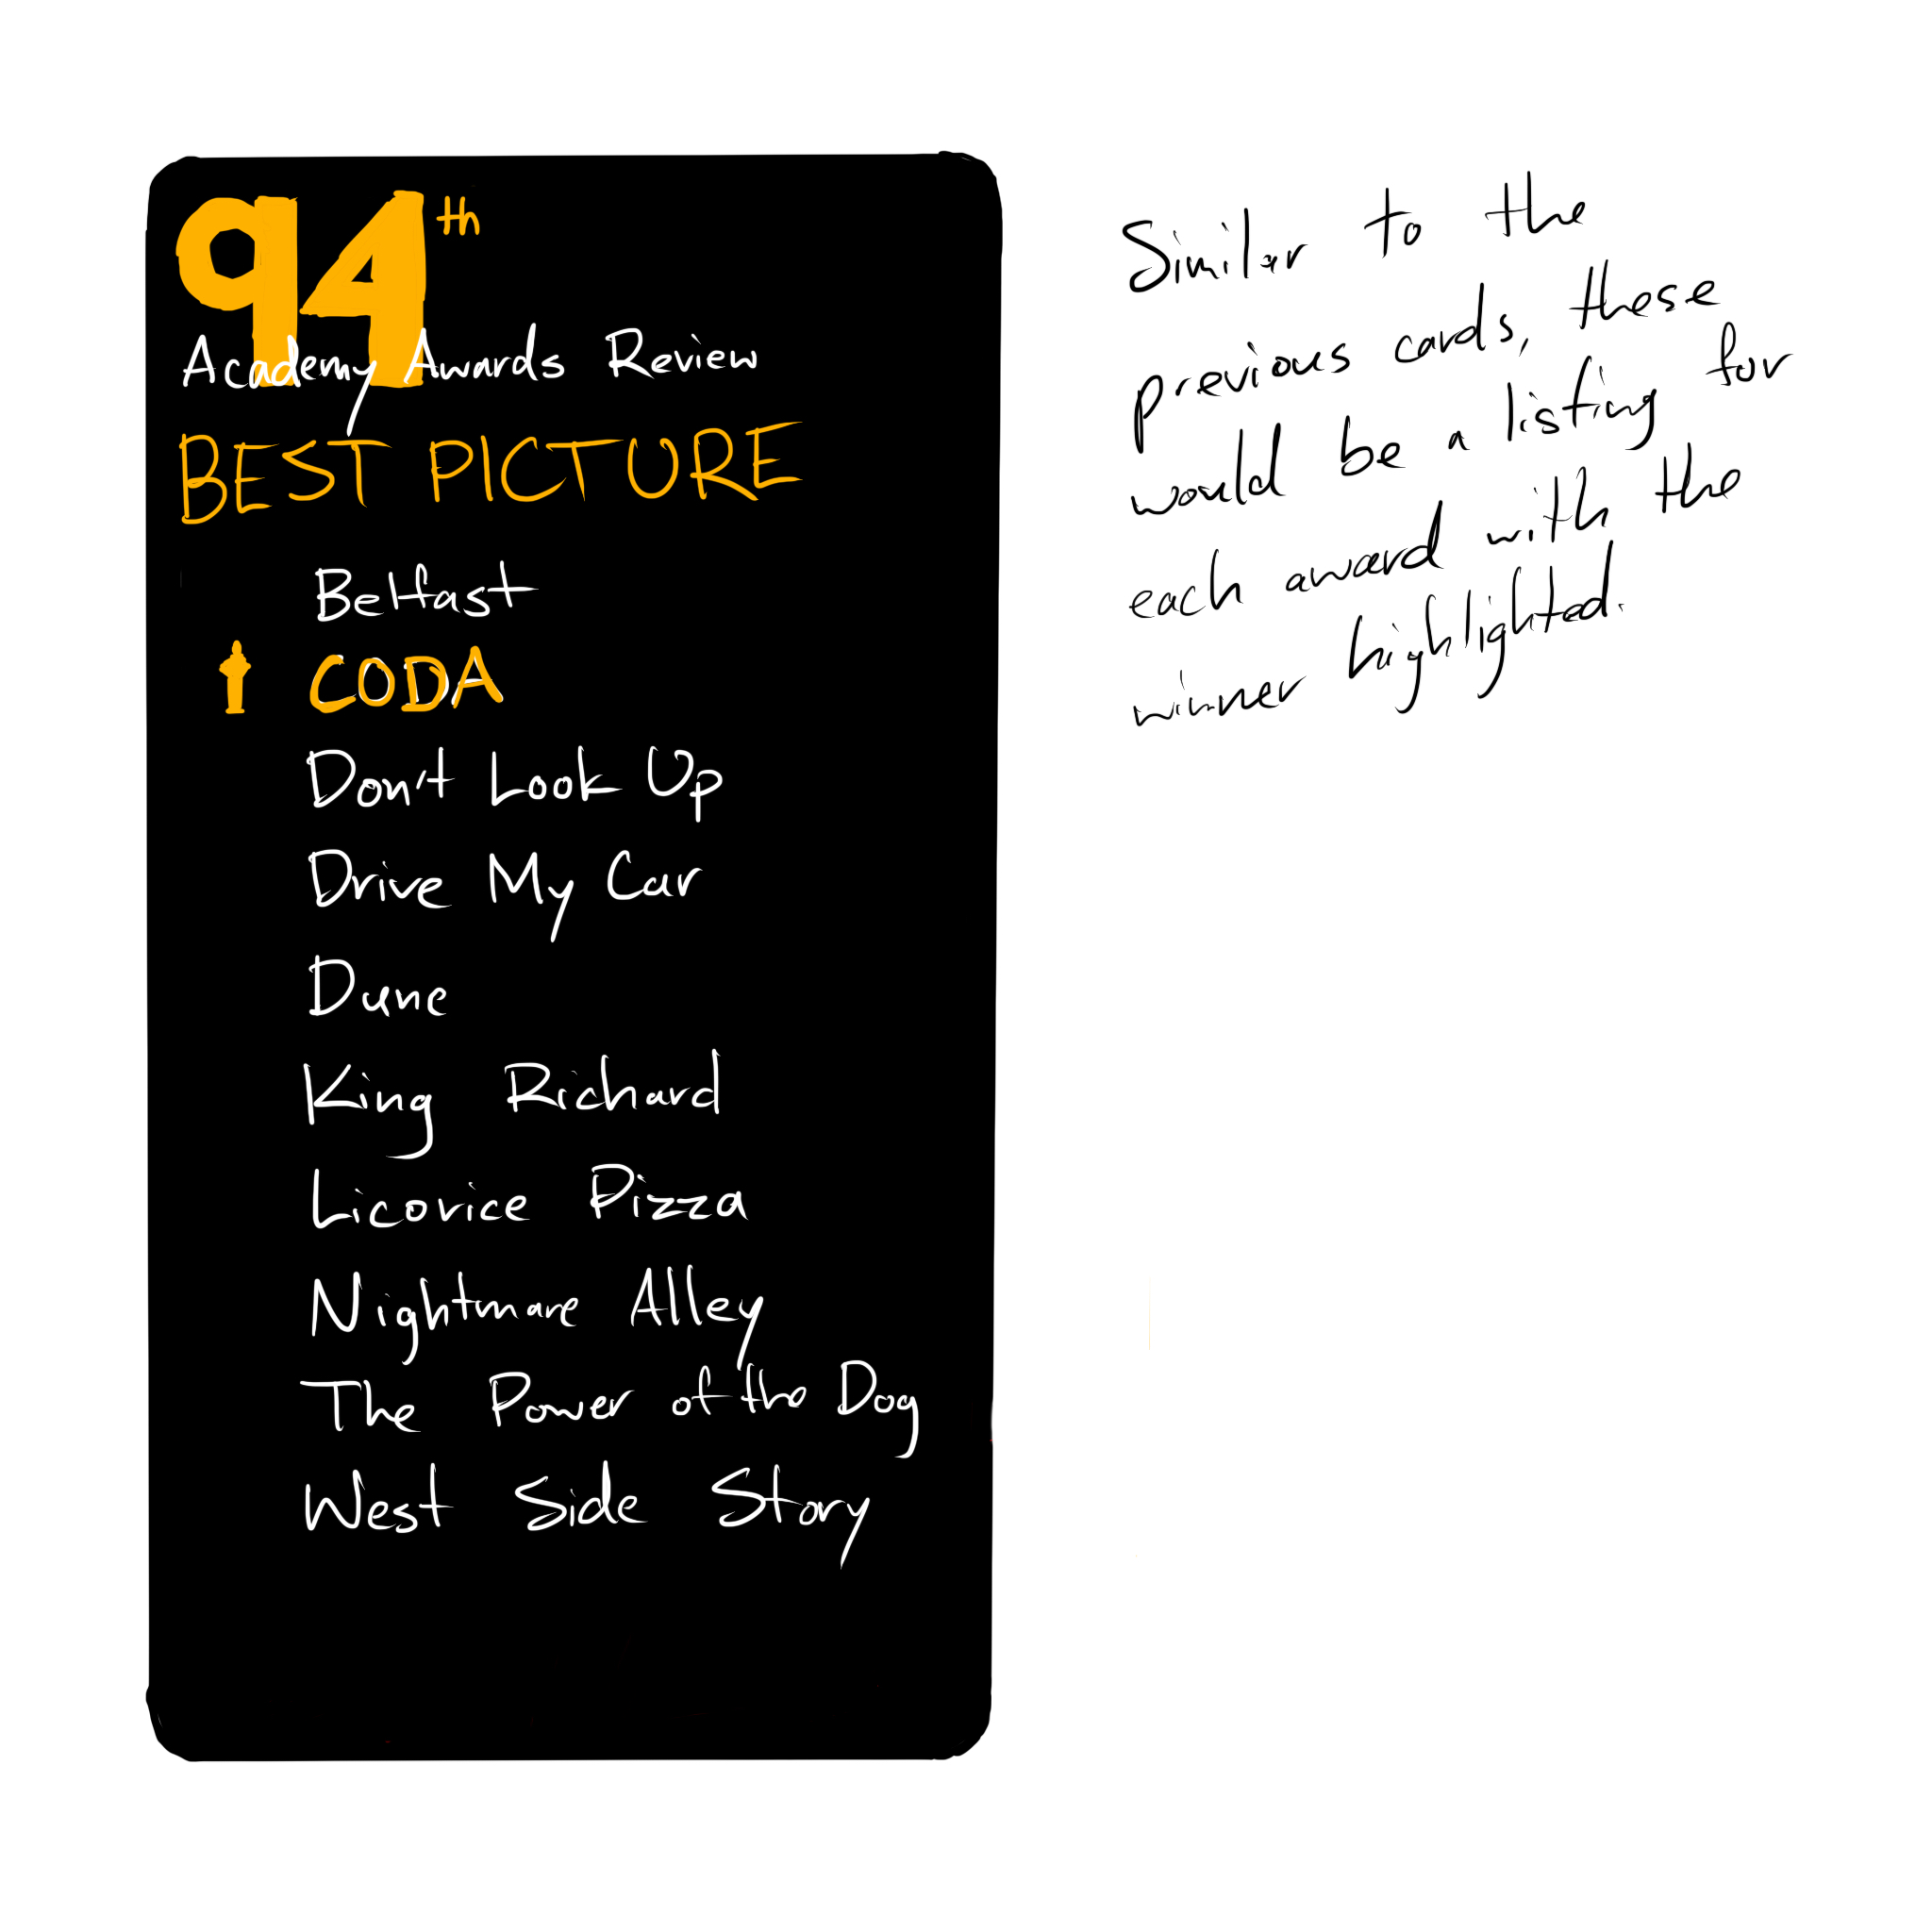 94th
Academy Awards Review
BEST PICTURE
Belfast
CODA
Don't Look Up
Drive My Car
Dune
King Richard
Licorice Pizza
Nightmare Alley
The Power of the Dog
West Side Story
Similar to the
previous cards, these
would be a listing for
each award with the
winner highlighted.